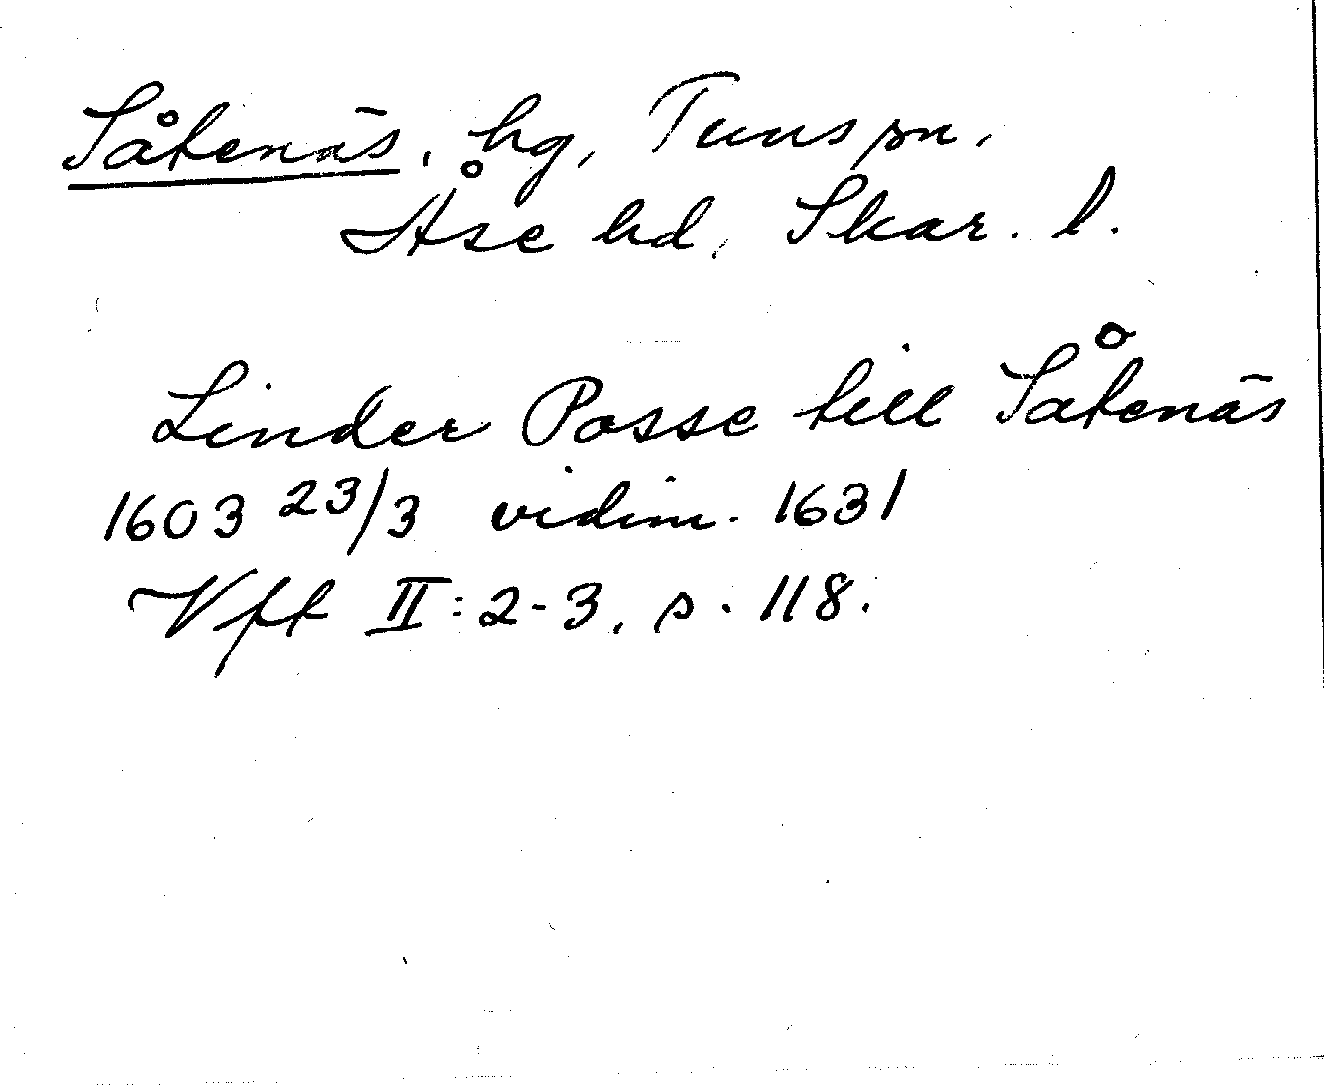 Såtenäs, hg, Tuns sn,
Åse hd, Skar. l.
Linder Posse till Såtenäs
1603 23/3 vidim. 1631
Vft II:2-3, s. 118.